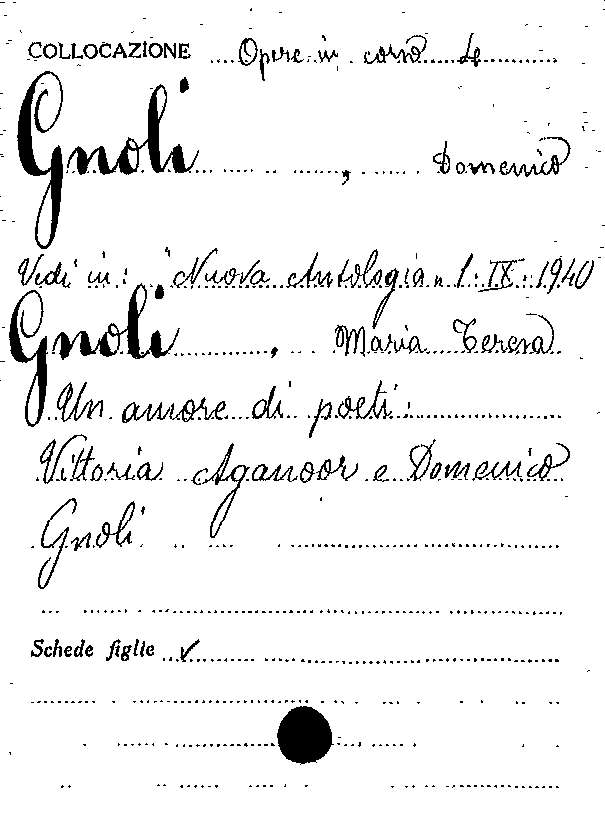 COLLOCAZIONE Opere in corso 4
Gnoli, Domenico
Vedi in: "Nuova Antologia" 1. IX. 1940
Gnoli, Maria Teresa
Un amore di poeti:
Vittoria Aganoor e Domenico
Gnoli
Schede figlie ✓